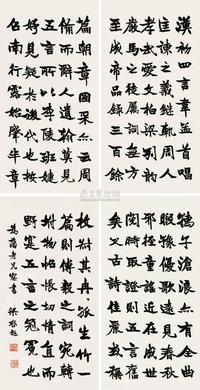 漢初四言韋孟首唱
匡諫之義繼軌周人
孝武愛文柏梁列韻
嚴馬之徒屬辭無方
至成帝品錄三百餘
篇朝章國采亦云周
備而辭人遺翰莫見
五言所以李陵班婕
妤見疑於後代也按
召南行露始肇半章
孺子滄浪亦有全曲
暇豫優歌遠見春秋
邪徑童謠近在成世
閱時取證則五言久
矣又古詩佳麗或稱
枚叔其冉冉孤生竹一
篇則傅毅之詞宛轉
附物怊悵切情直而不
野實五言之冠冕也
老兄 書 梁啟超